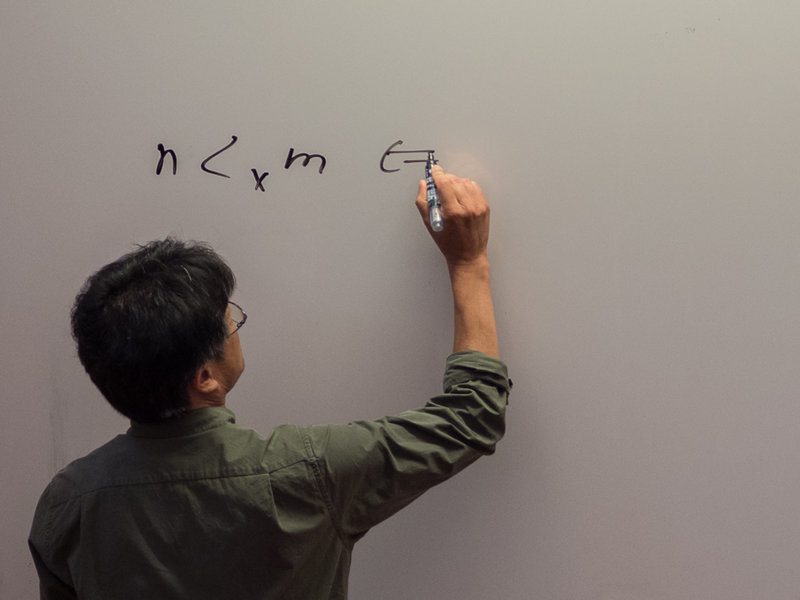 n <ₓ m ⇐